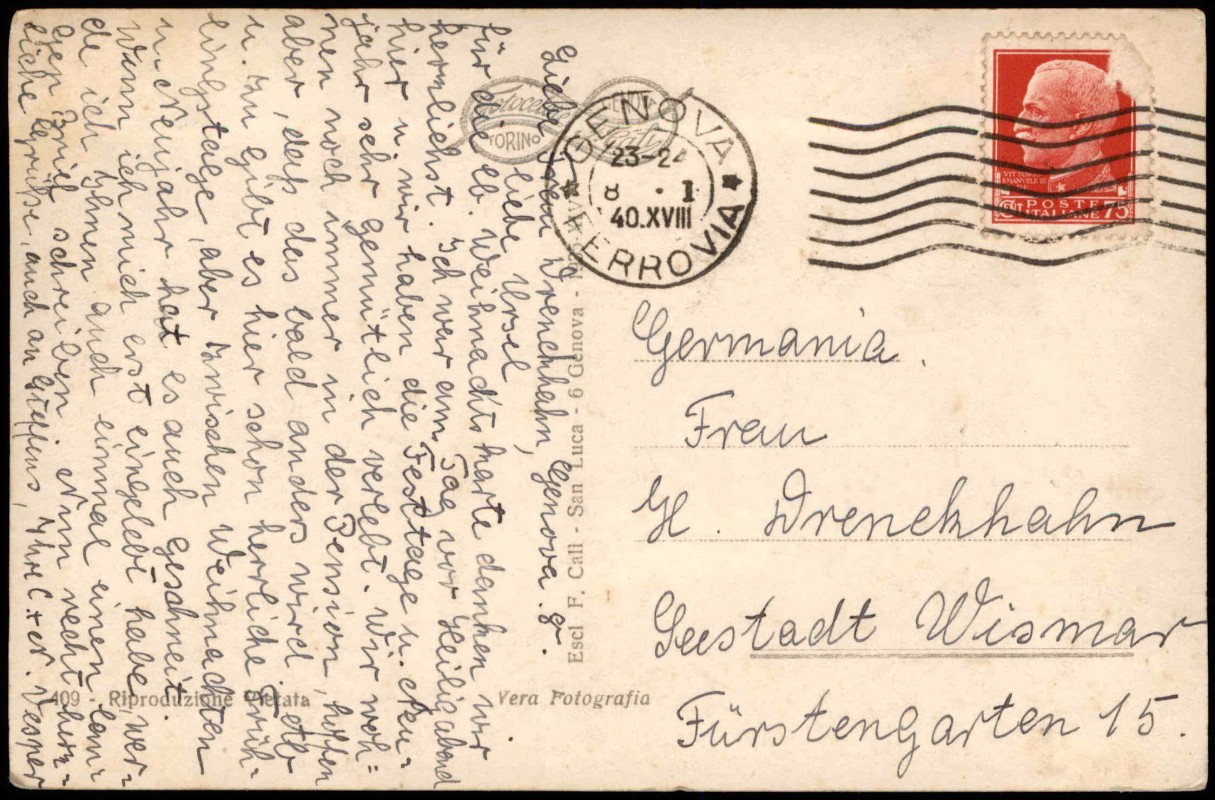 Liebe Frau Drenckhahn, Genova. 9.
liebe Ursel,
für die lb. Weihnachtskarte danken wir
herzlichst. Ich war am Tag vor Heiligabend
hier u. wir haben die Festtage u. Neu-
jahr sehr gemütlich verlebt. Wir woh=
nen noch immer in der Pension, hoffen
aber, daß das bald anders wird. Jetzt
u. gibt es hier schon herrliche Früh-
lingstage, aber zwischen Weihnachten
u. Neujahr hat es auch geschneit.
Wenn ich mich erst eingelebt habe, wer-
de ich Ihnen auch einmal einen lan-
gen Brief schreiben. Nun recht herz=
liche Grüße, auch an Steffens, Ihre
Fotocelere
TORINO
VERA
Foto
GENOVA
23-24
8 · I
40.XVIII
FERROVIA
VITTORIO
EMANUELE III
RE
CENT 75
POSTE
ITALIANE
Escl F. Cali - San Luca - 6 Genova -
Germania.
Frau
Drenckhahn
Seestadt Wismar
Fürstengarten 15.
409 - Riproduzione Vietata
Vera Fotografia